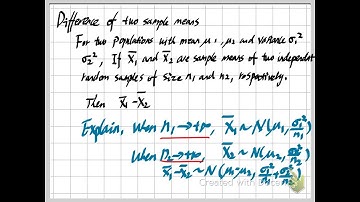 Difference of two sample means
For two populations with mean μ1, μ2 and variance σ1²
σ2², If X̄1 and X̄2 are sample means of two independt
random samples of size n1 and n2, respectively.
Then X̄1-X̄2
Explain, when n1→+∞, X̄1 ~ N(μ1, σ1²/n1)
when n2→+∞, X̄2 ~ N(μ2, σ2²/n2)
X̄1-X̄2 ~ N(μ1-μ2, σ1²/n1+σ2²/n2)
Created with Doceri